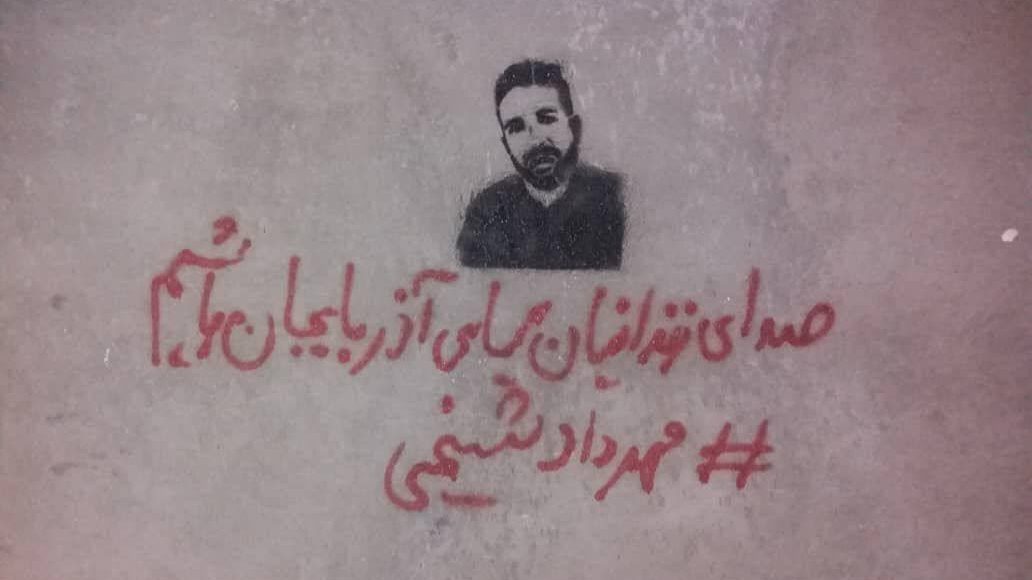 صدای زندانیان سیاسی آذربایجان باشیم
# مهرداد شیخی